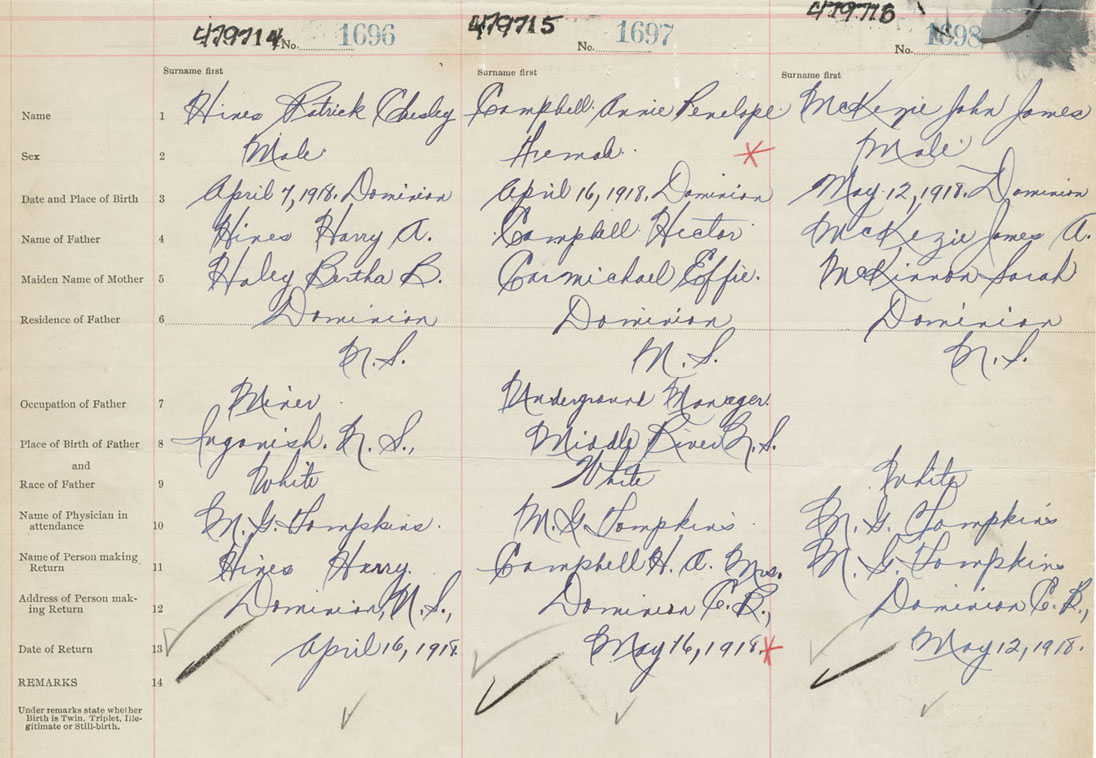 479714 No. 1696 479715 No. 1697 479716 No. 1698
Surname first Surname first Surname first
Name 1 Hines Patrick Chesley Campbell Annie Penelope McKezie John James
Sex 2 Male Female Male
Date and Place of Birth 3 April 7, 1918. Dominion April 16, 1918. Dominion May 12, 1918. Dominion
Name of Father 4 Hines Harry A. Campbell Hector McKezie James A.
Maiden Name of Mother 5 Haley Bertha B. Carmichael Effie. McKinnon Sarah
Residence of Father 6 Dominion Dominion Dominion
N.S. N.S. N.S.
Occupation of Father 7 Miner Underground Manager.
Place of Birth of Father 8 Ingonish. N.S., Middle River N.S.
and
Race of Father 9 White White White
Name of Physician in
attendance 10 M. G. Tompkins. M. G. Tompkins M. G. Tompkins
Name of Person making
Return 11 Hines Harry. Campbell H. A. Mrs. M. G. Tompkins
Address of Person mak-
ing Return 12 Dominion, N.S., Dominion C.B., Dominion C.B.,
Date of Return 13 April 16, 1918. May 16, 1918. May 12, 1918.
REMARKS 14
Under remarks state whether
Birth is Twin, Triplet, Ille-
gitimate or Still-birth.